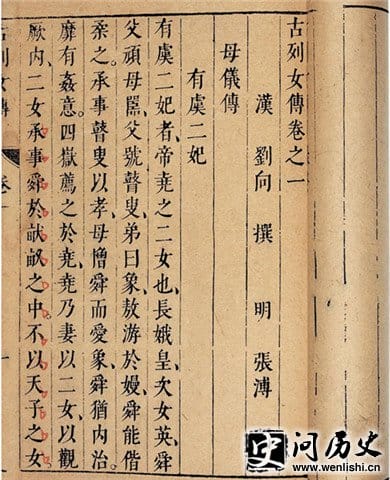 古列女傳卷之一
漢 劉向 撰 明 張溥
母儀傳
有虞二妃
有虞二妃者、帝堯之二女也、長娥皇、次女英、舜
父頑母嚚、父號瞽叟、弟曰象、敖游於嫚、舜能偕
柔之、承事瞽叟以孝、母憎舜而愛象、舜猶内治、
靡有姦意、四嶽薦之於堯、堯乃妻以二女、以觀
厥内、二女承事舜於畎畝之中、不以天子之女
古列女傳
问历史
www.wenlishi.cn